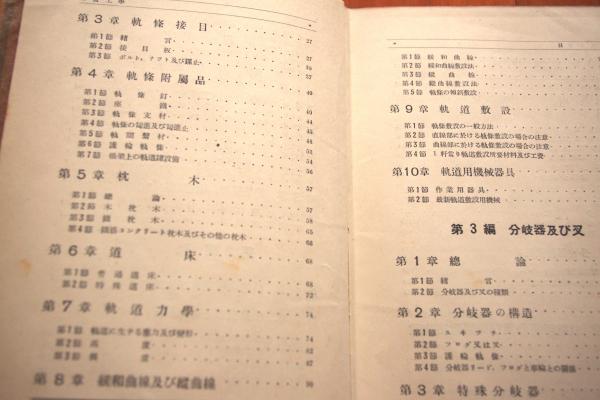 第3章 軌條接目 27
第1節 緒言 27
第2節 接目板
第3節 ボルト、ナツト及び鐶止
第4章 軌條附屬品 40
第1節 軌條釘 40
第2節 座鐵
第3節 軌條支材 44
第4節 軌條の匐進及び匐進止 44
第5節 軌間繋材
第6節 護輪軌條
第7節 橋梁上の軌道諸設備 54
第5章 枕木 57
第1節 總論 57
第2節 木枕木
第3節 鐵枕木 65
第4節 鐵筋コンクリート枕木及びその他の枕木 65
第6章 道床 68
第1節 普通道床 68
第2節 特殊道床 72
第7章 軌道力學 74
第1節 軌道に生ずる應力及び變形 74
第2節
第3節
第8章 緩和曲線及び縱曲線 90
目
第1節 緩和曲線
第2節 緩和曲線敷設法
第3節 縱曲線
第4節 縱曲線敷設法
第5節 軌條の傾斜敷設
第9章 軌道敷設
第1節 軌條敷設の一般方法
第2節 直線部に於ける軌條敷設の場合の注意
第3節 曲線部に於ける軌條敷設の場合の注意
第4節 1軒當り軌道敷設所要材料及び工費
第10章 軌道用機械器具
第1節 作業用器具
第2節 最新軌道敷設用機械
第3編 分岐器及び叉
第1章 總論
第1節 緒言
第2節 分岐器及び叉の種類
第2章 分岐器の構造
第1節 スヰツチ
第2節 フログ又は叉
第3節 護輪軌條
第4節 分岐器リード、フログと車輪との關係
第3章 特殊分岐器